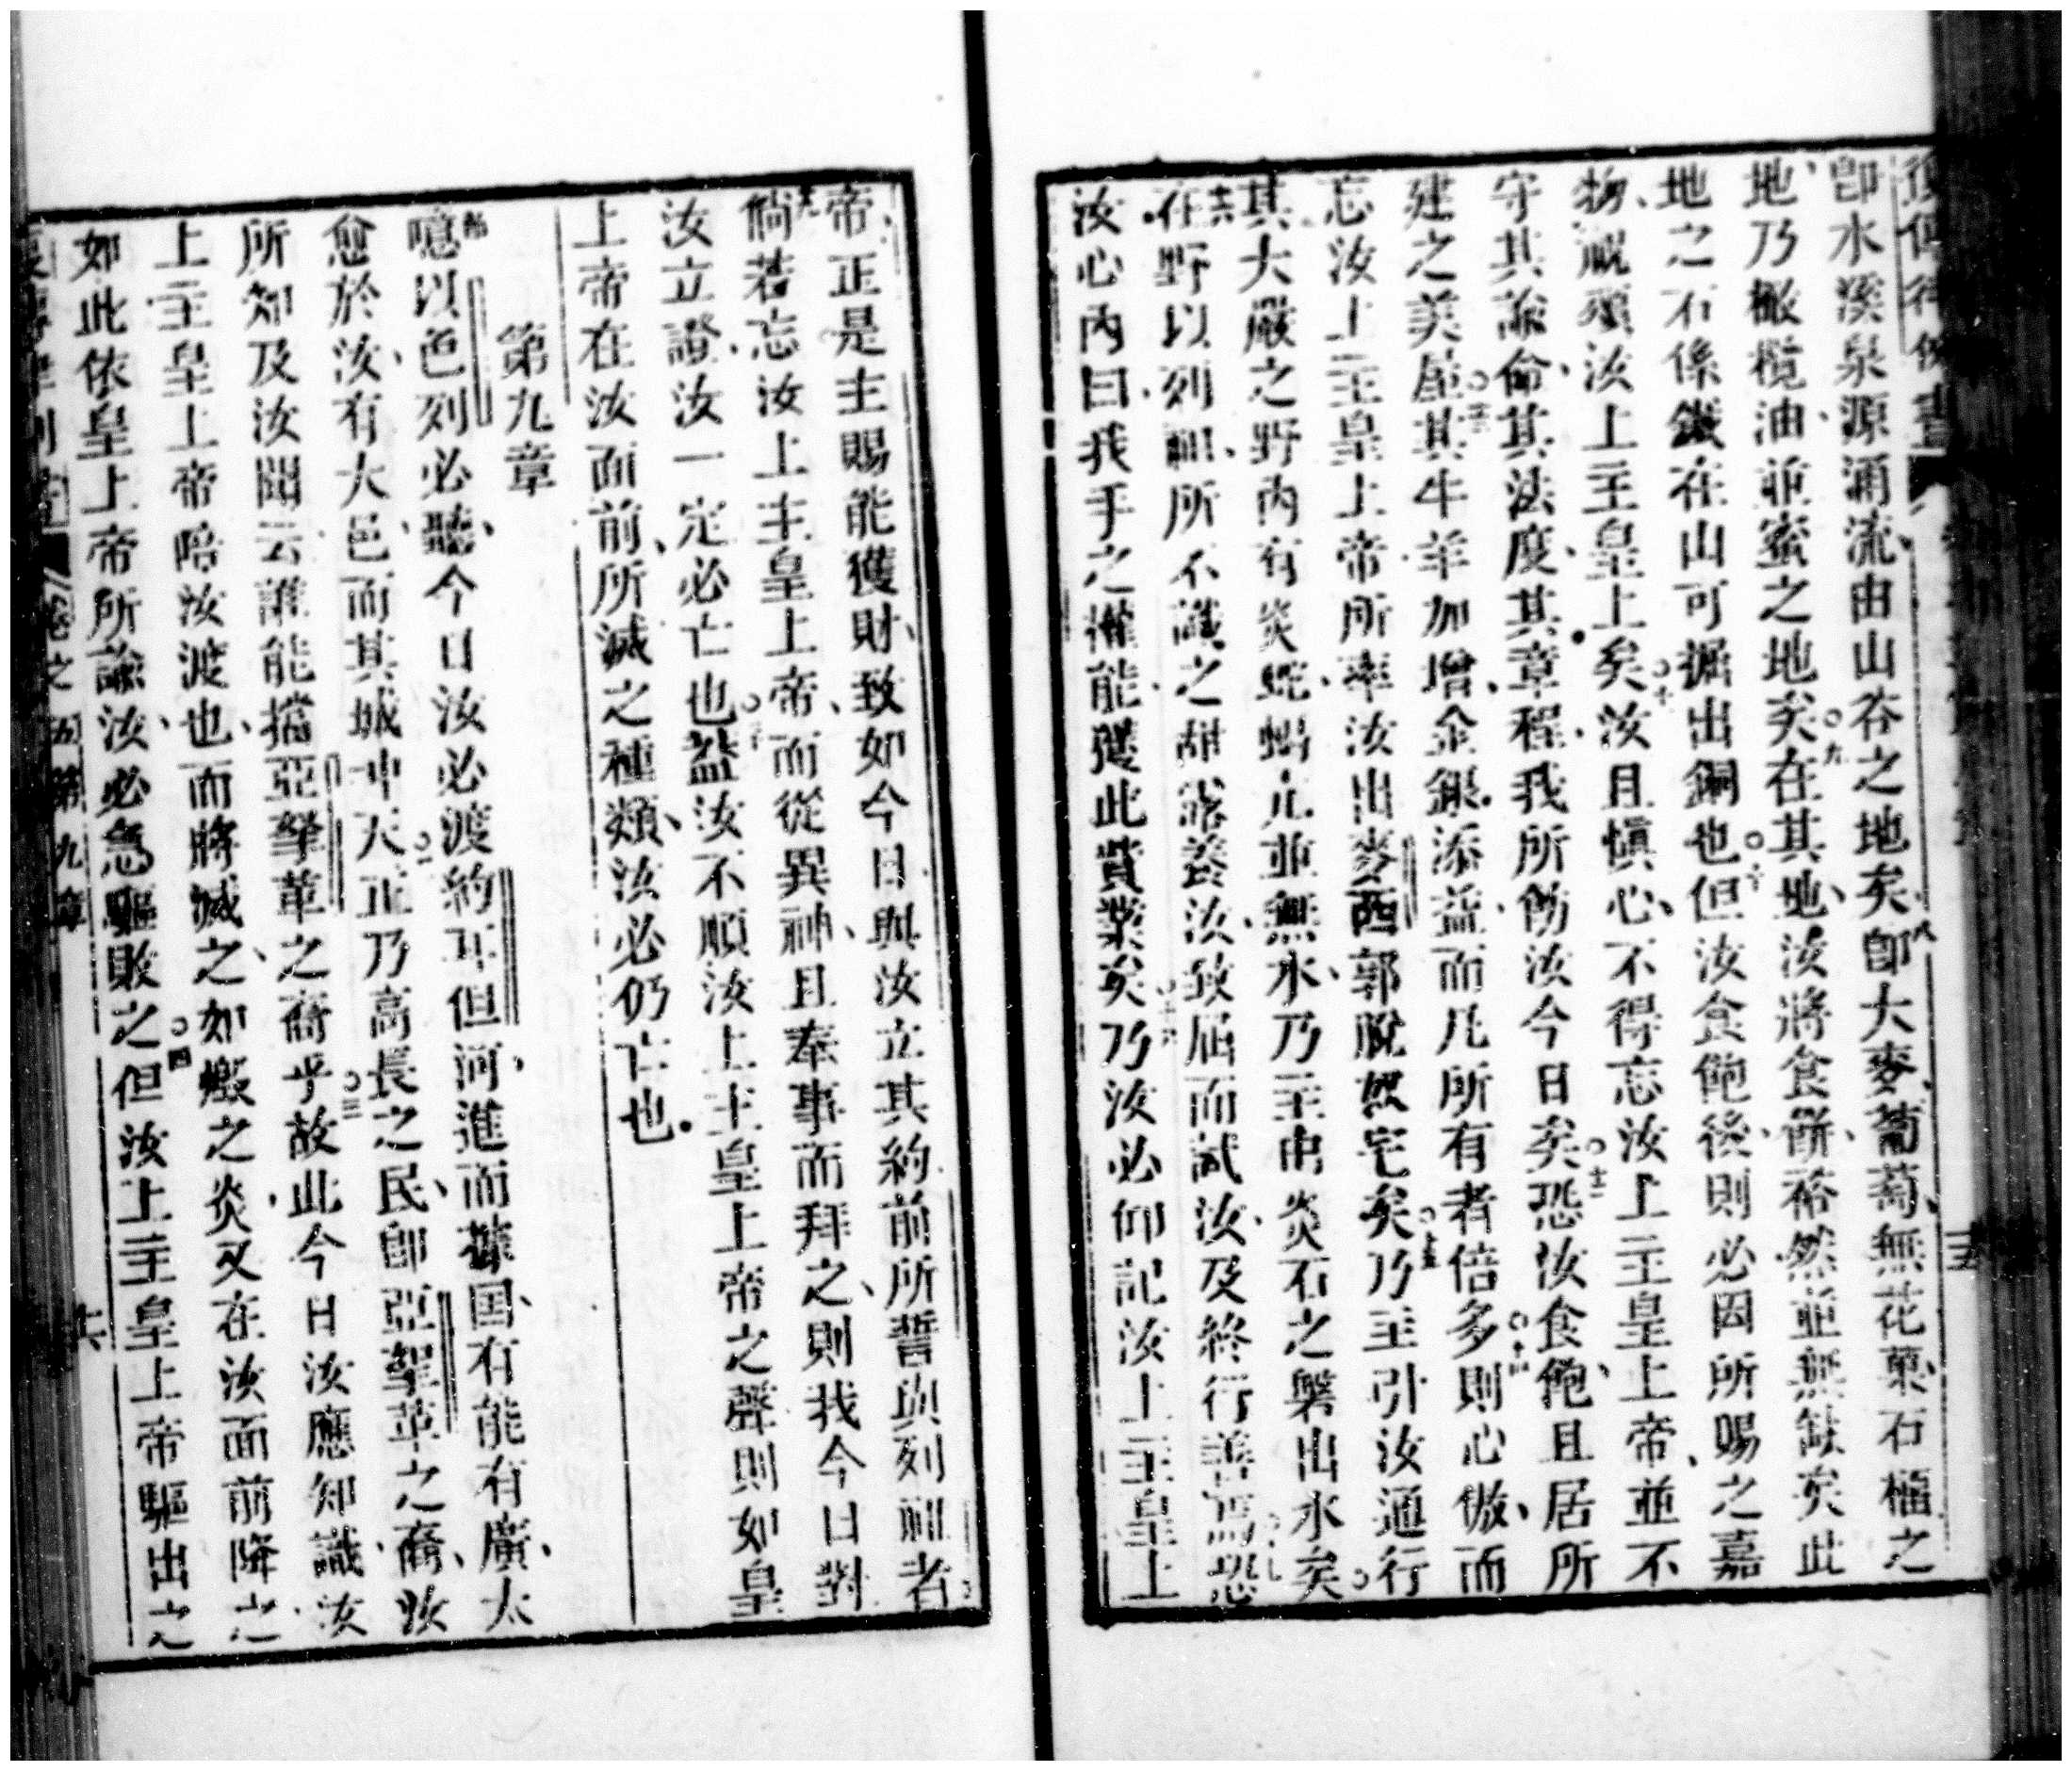 復傳律例書
卽水溪泉源涌流由山谷之地矣八卽大麥葡萄無花菓石榴之
地乃橄欖油並蜜之地矣○九在其地汝將食餅裕然並無缺矣此
地之石係鐵在山可掘出銅也○十但汝食飽後則必因所賜之嘉
物頌汝上主皇上矣○十汝且慎心不得忘汝上主皇上帝並不
守其諭命其法度其章程我所飭汝今日矣○十二恐汝食飽且居所
建之美屋○十三其牛羊加增金銀添益而凡所有者倍多○十四則心傲而
忘汝上主皇上帝所率汝出麥西郭脫奴宅矣○十五乃主引汝通行
其大嚴之野內有炎蛇蝎亢並無水乃主由炎石之磐出水矣○
十六在野以列祖所不識之甜露養汝致屈而試汝及終行善焉○十七恐
汝心內曰我手之權能獲此貲業矣○十八乃汝必仰記汝上主皇上
帝正是主賜能獲財致如今日與汝立其約前所誓與列祖者○
十九倘若忘汝上主皇上帝而從異神且奉事而拜之則我今日對
汝立證汝一定必亡也○二十蓋汝不順汝上主皇上帝之聲則如皇
上帝在汝面前所滅之種類汝必仍亡也
第九章
節一噫以色列必聽今日汝必渡約耳但河進而據国有能有廣太
愈於汝有大邑而其城冲天○二正乃高長之民卽亞拏革之裔汝
所知及汝聞云誰能擋亞拏革之裔乎○三故此今日汝應知識汝
上主皇上帝陪汝渡也而將滅之如燬之炎又在汝面前降之
如此依皇上帝所諭汝必急驅敗之○四但汝上主皇上帝驅出之
卷之五第九章